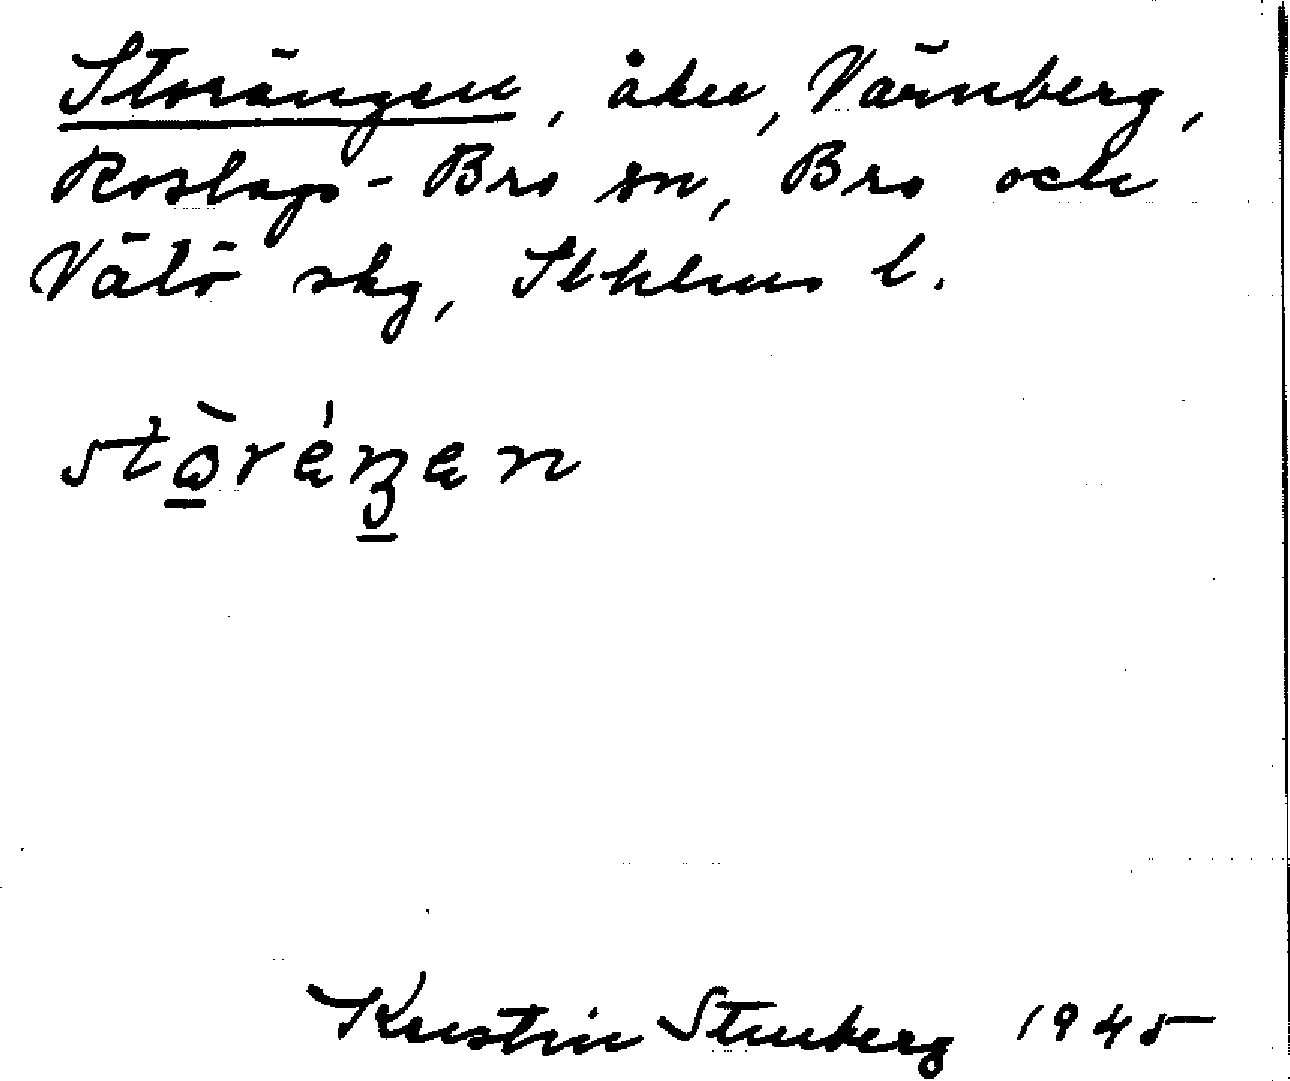 Storängen, åker, Värnberg,
Roslags-Bro sn, Bro och
Vätö skg, Stohlms l.
Kerstin Stenberg 1945